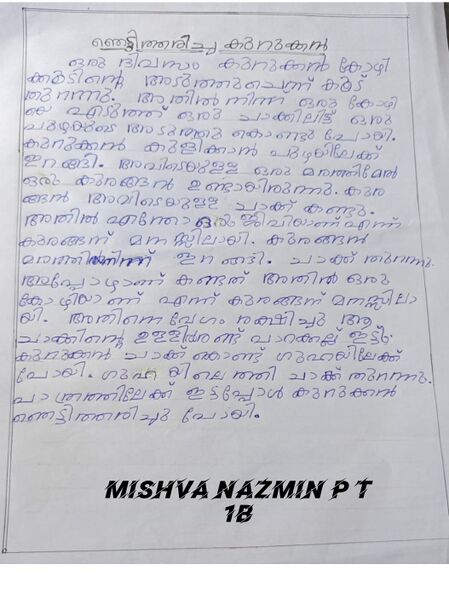 ഞെട്ടിത്തരിച്ച കുറുക്കൻ
ഒരു ദിവസം കുറുക്കൻ കോഴി
ക്കൂടിന്റെ അടുത്തുചെന്ന് കൂട്
തുറന്നു. അതിൽ നിന്ന് ഒരു കോഴി
യെ എടുത്ത് ഒരു ചാക്കിലിട്ട് ഒരു
പുഴയുടെ അടുത്തു കൊണ്ടു പോയി.
കുറുക്കൻ കുളിക്കാൻ പുഴയിലേക്ക്
ഇറങ്ങി. അവിടെയുള്ള ഒരു മരത്തിമേൽ
ഒരു കുരങ്ങൻ ഉണ്ടായിരുന്നു. കുര
ങ്ങൻ അവിടെയുള്ള ചാക്ക് കണ്ടു.
അതിൽ എന്തോ ഒരു ജീവിയാണ് എന്ന്
കുരങ്ങന് മനസ്സിലായി. കുരങ്ങൻ
മരത്തിൽനിന്ന് ഇറങ്ങി. ചാക്ക് തുറന്നു.
അപ്പോഴാണ് കണ്ടത് അതിൽ ഒരു
കോഴിയാണ് എന്ന് കുരങ്ങന് മനസ്സിലാ
യി. അതിനെ വേഗം രക്ഷിച്ചു ആ
ചാക്കിന്റെ ഉള്ളിൽ രണ്ട് പാറക്കല്ല് ഇട്ടു.
കുറുക്കൻ ചാക്ക് കൊണ്ട് ഗുഹയിലേക്ക്
പോയി. ഗുഹയിലെത്തി ചാക്ക് തുറന്നു.
പാത്രത്തിലേക്ക് ഇട്ടപ്പോൾ കുറുക്കൻ
ഞെട്ടിത്തരിച്ചു പോയി.
MISHVA NAZMIN P T
1B